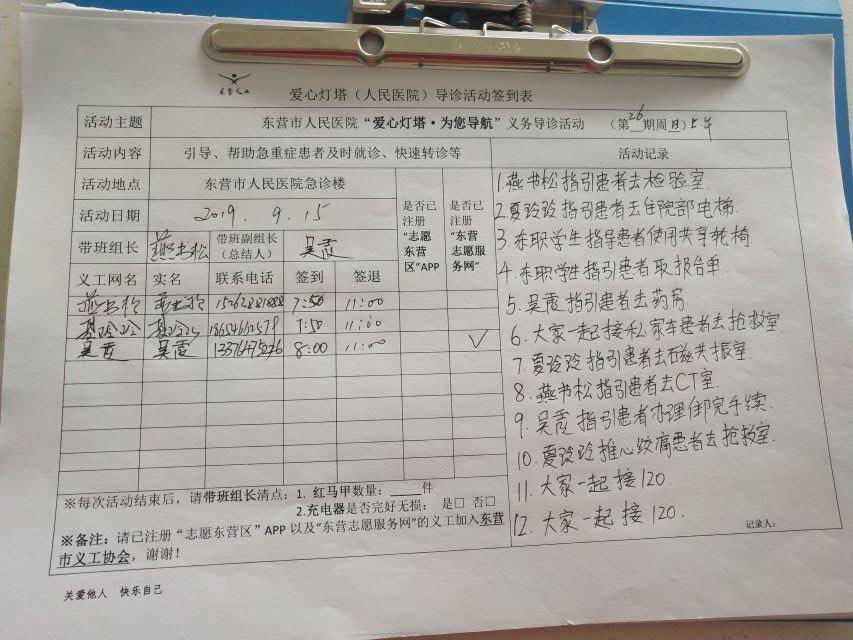 东营义工
爱心灯塔（人民医院）导诊活动签到表
活动主题 东营市人民医院“爱心灯塔·为您导航”义务导诊活动 （第26期周日）上午
活动内容 引导、帮助急重症患者及时就诊、快速转诊等 活动记录
活动地点 东营市人民医院急诊楼 是否已注册“志愿东营区”APP 是否已注册“东营志愿服务网”
活动日期 2019.9.15
带班组长 燕书松 带班副组长（总结人） 吴霞
义工网名 实名 联系电话 签到 签退
燕书松 燕书松 7:50 11:00
夏玲玲 夏玲玲 7:50 11:00
吴霞 吴霞 8:00 11:00 √
1.燕书松指引患者去检验室.
2.夏玲玲指引患者去住院部电梯.
3.东职学生指导患者使用共享轮椅.
4.东职学生指引患者取报告单.
5.吴霞指引患者去药房.
6.大家一起接私家车患者去抢救室.
7.夏玲玲指引患者去核磁共振室.
8.燕书松指引患者去CT室.
9.吴霞指引患者办理住院手续.
10.夏玲玲推心绞痛患者去抢救室.
11.大家一起接120.
12.大家一起接120.
记录人：
※每次活动结束后，请带班组长清点：1. 红马甲数量：____件
2.充电器是否完好无损： 是□ 否□
※备注：请已注册“志愿东营区”APP以及“东营志愿服务网”的义工加入东营
市义工协会，谢谢！
关爱他人 快乐自己